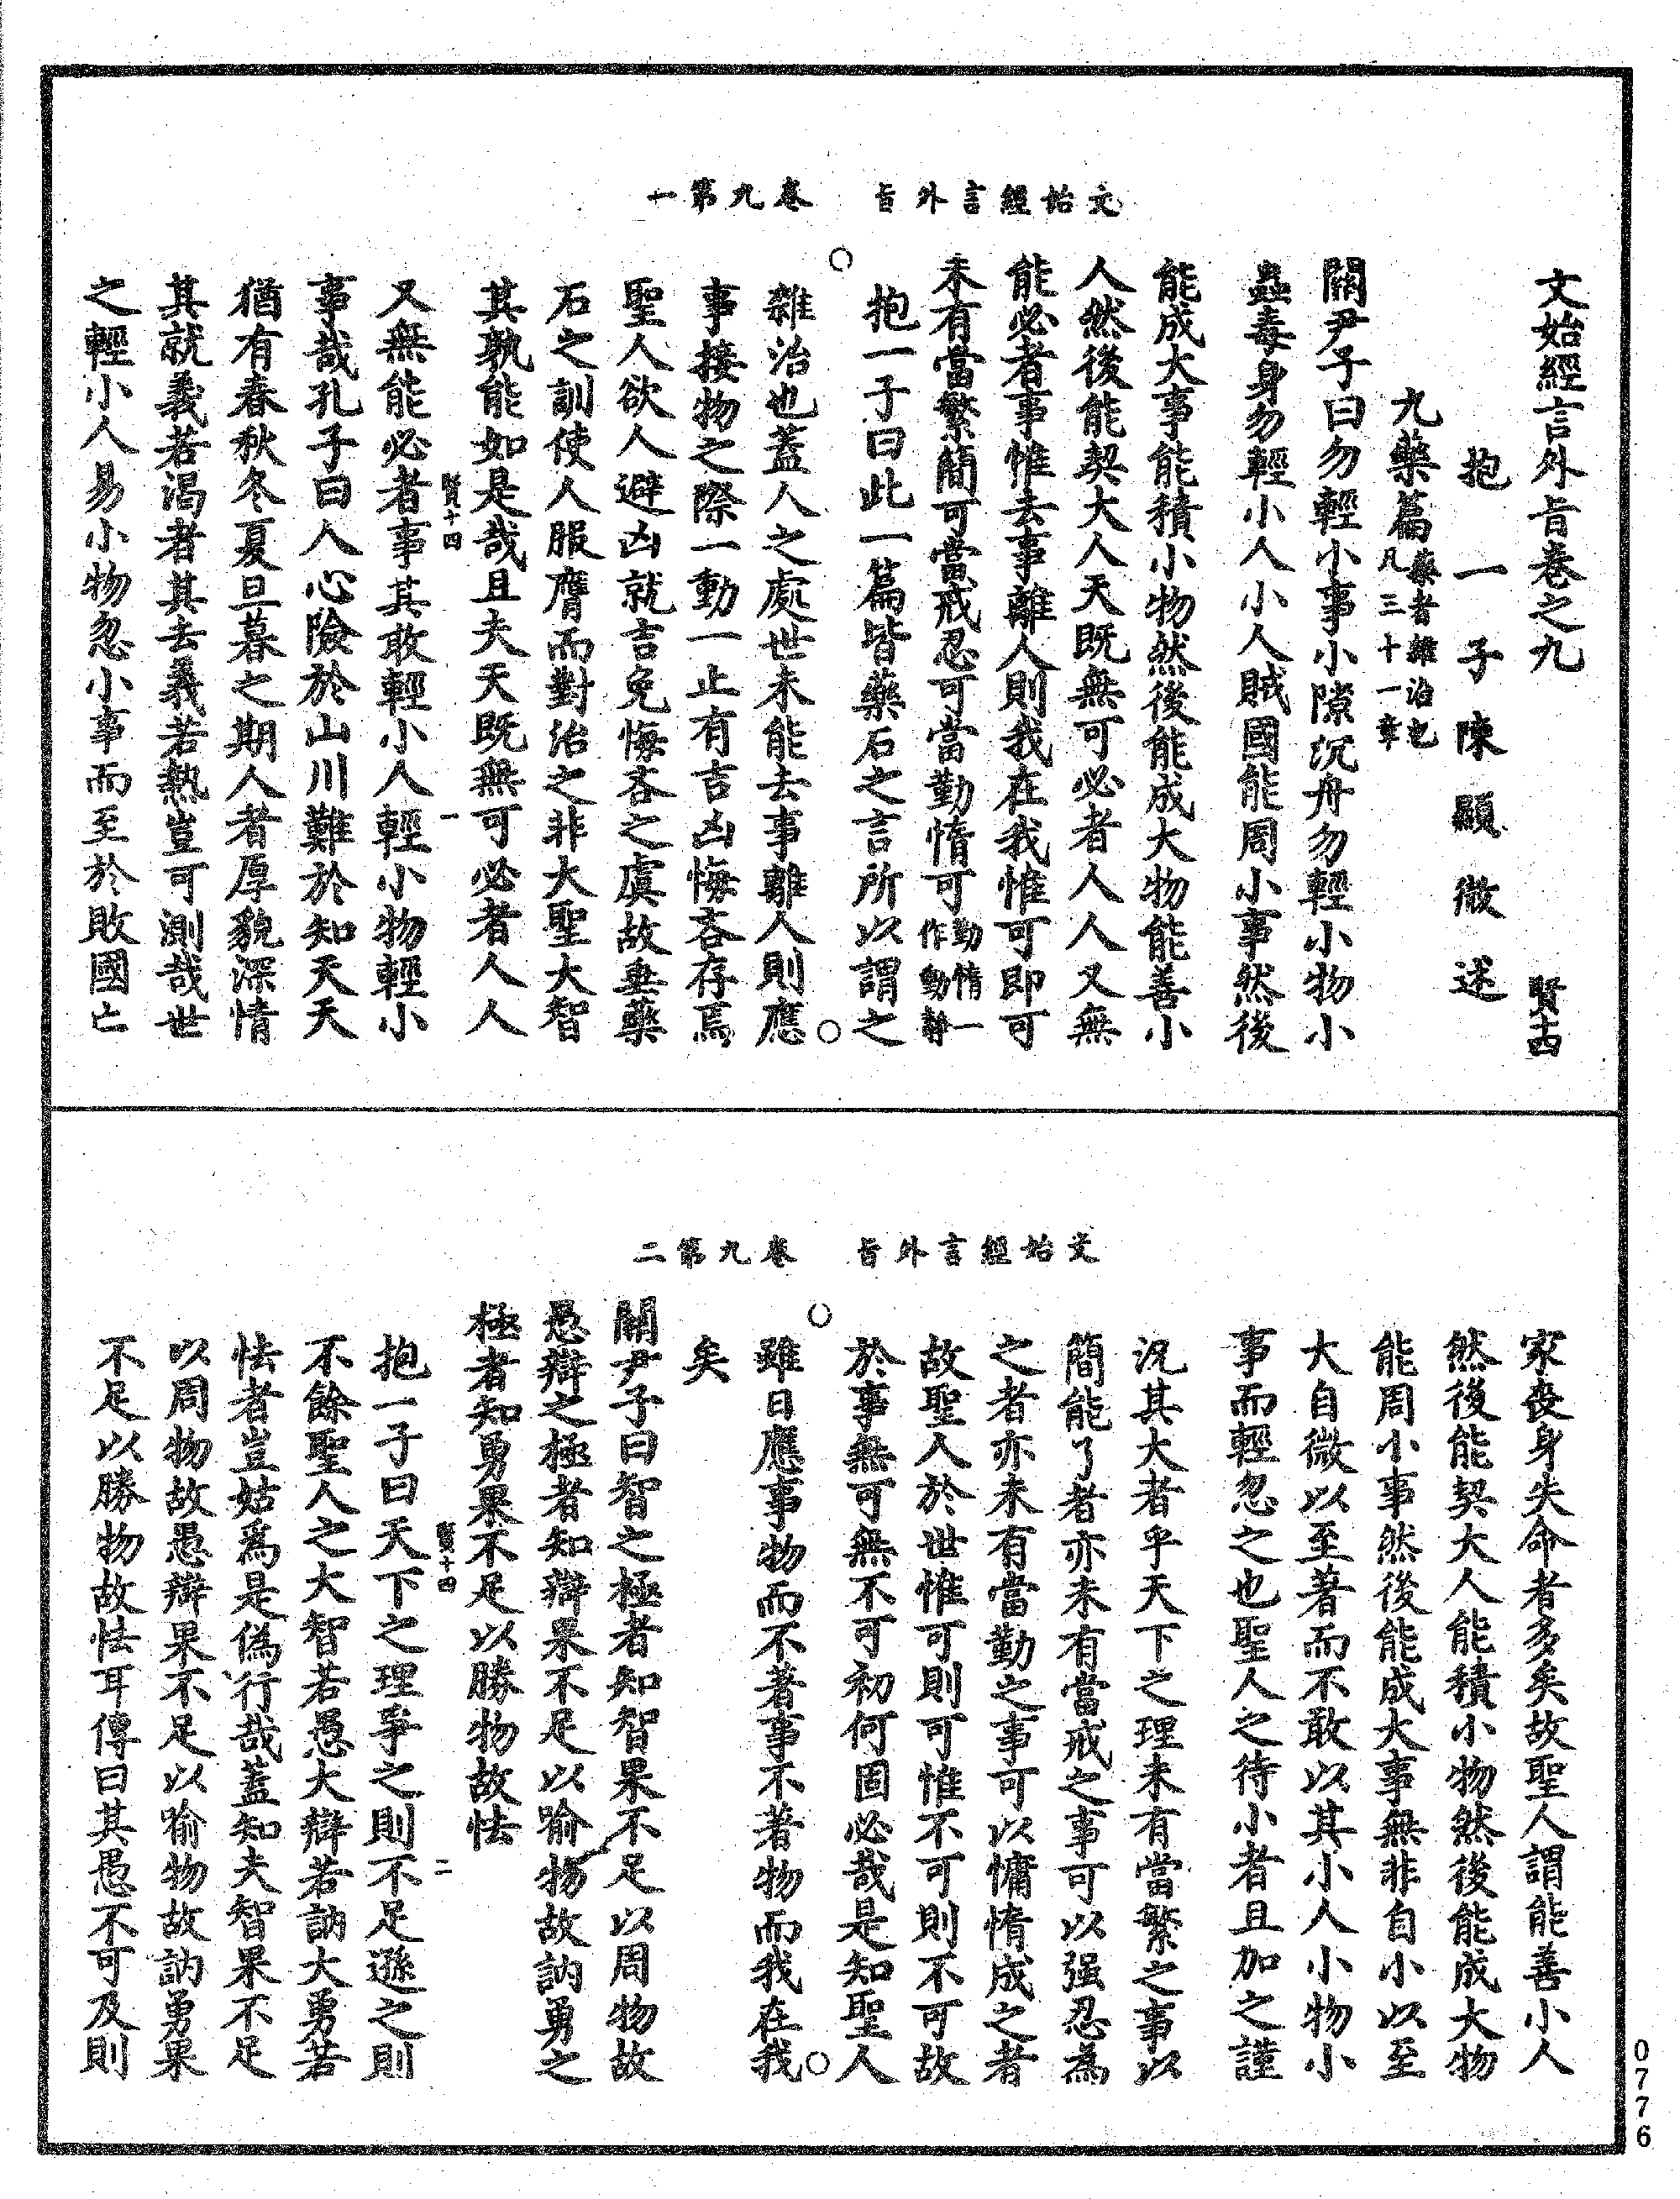 文始經言外旨　卷九第一
文始經言外旨卷之九　賢十四
抱一子陳顯微述
九藥篇藥者雜治也
凡三十一章
關尹子曰勿輕小事小隙沉舟勿輕小物小
蟲毒身勿輕小人小人賊國能周小事然後
能成大事能積小物然後能成大物能善小
人然後能契大人天既無可必者人人又無
能必者事惟去事離人則我在我惟可即可
未有當繁簡可當戒忍可當勤惰可勤惰一
作動靜
抱一子曰此一篇皆藥石之言所以謂之
雜治也蓋人之處世未能去事離人則應
事接物之際一動一止有吉凶悔吝存焉
聖人欲人避凶就吉免悔吝之虞故垂藥
石之訓使人服膺而對治之非大聖大智
其孰能如是哉且夫天既無可必者人人
賢十四　一
又無能必者事其敢輕小人輕小物輕小
事哉孔子曰人心險於山川難於知天天
猶有春秋冬夏旦暮之期人者厚貌深情
其就義若渴者其去義若熱豈可測哉世
之輕小人易小物忽小事而至於敗國亡
文始經言外旨　卷九第二
家喪身失命者多矣故聖人謂能善小人
然後能契大人能積小物然後能成大物
能周小事然後能成大事無非自小以至
大自微以至著而不敢以其小人小物小
事而輕忽之也聖人之待小者且加之謹
況其大者乎天下之理未有當繁之事以
簡能了者亦未有當戒之事可以强忍為
之者亦未有當勤之事可以慵惰成之者
故聖人於世惟可則可惟不可則不可故
於事無可無不可初何固必哉是知聖人
雖日應事物而不著事不著物而我在我
矣
關尹子曰智之極者知智果不足以周物故
愚辯之極者知辯果不足以喻物故訥勇之
極者知勇果不足以勝物故怯
賢十四　二
抱一子曰天下之理爭之則不足遜之則
不餘聖人之大智若愚大辯若訥大勇若
怯者豈姑爲是偽行哉蓋知夫智果不足
以周物故愚辯果不足以喻物故訥勇果
不足以勝物故怯耳傳曰其愚不可及則
0776